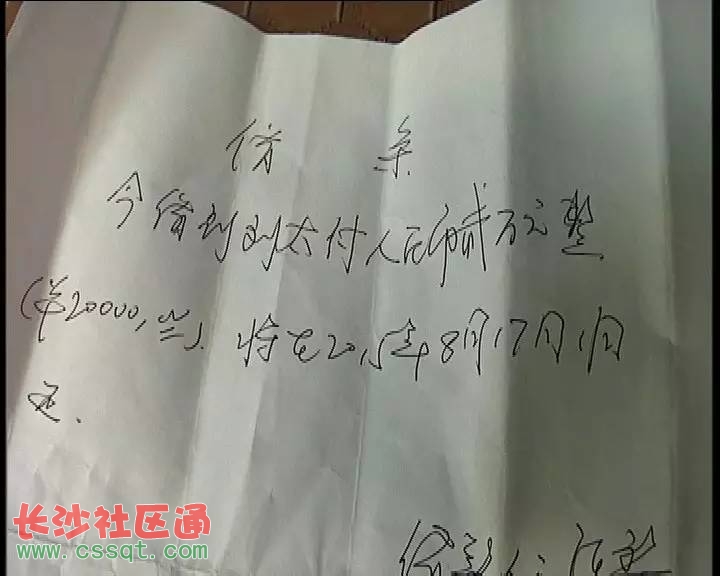 借 条
今借到刘太付人民币贰万元整
(¥20000,00). 将在2015年8月17日归
还.
借款人:
长沙社区通
www.cssqt.com